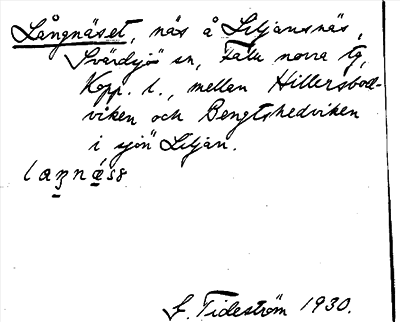 Långnäset, näs å Liljansnäs,
Svärdsjö sn, Falu norra tg,
Kopp. l., mellan Hillersbod-
viken och Bengtshedviken
i sjön Liljan.
G. Tideström 1930.